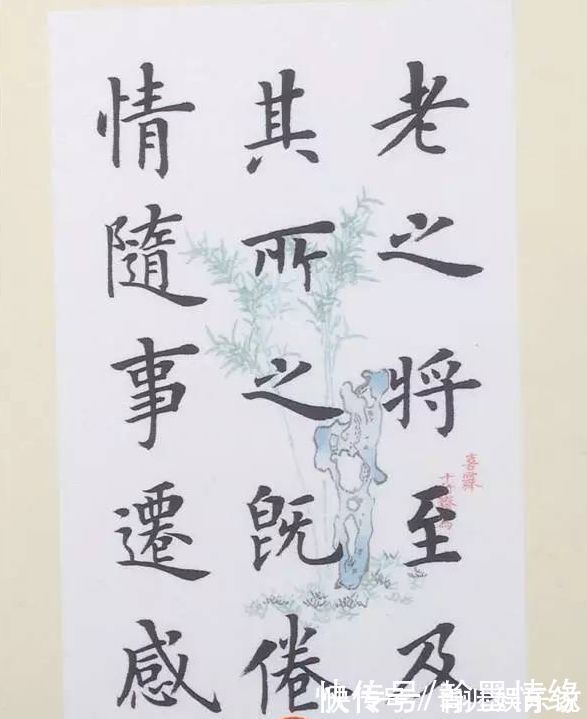 老之将至及
其所之既倦
情隨事遷感
快传号//翰墨情缘